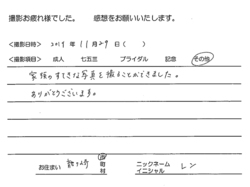 撮影お疲れ様でした。 感想をお願いいたします。
<撮影日時> 2019年 11月29日( )
<撮影項目> 成人 七五三 ブライダル 記念 その他
家族のすてきな写真を撮ることができました。
ありがとうございます。
お住まい 町 村 ニックネーム イニシャル レン